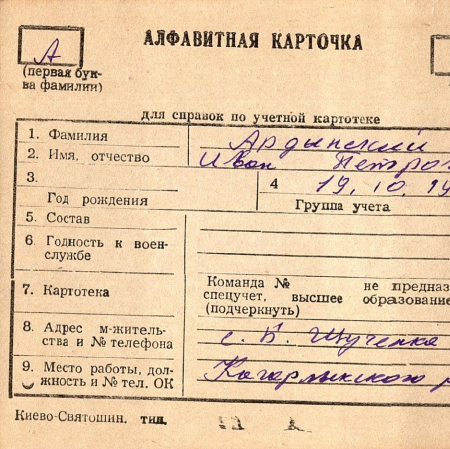 А
АЛФАВИТНАЯ КАРТОЧКА
(первая бук-
ва фамилии)
для справок по учетной картотеке
1. Фамилия
Ардынский
2. Имя, отчество
Иван Петров
3.
4
19. 10. 19
Год рождения
Группа учета
5. Состав
6. Годность к воен-
службе
7. Картотека
Команда № не предназ
спецучет, высшее образование
(подчеркнуть)
8. Адрес м-житель-
ства и № телефона
с. В. Щученка
9. Место работы, дол-
жность и № тел. ОК
Кагарлыкского р
Киево-Святошин. тип.